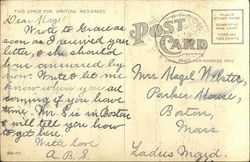 THIS SPACE FOR WRITING MESSAGES
POST CARD
PLACE
POSTAGE
STAMP
HERE
DOMESTIC
ONE CENT
FOREIGN
TWO CENTS
THIS SPACE FOR ADDRESS ONLY
Dear Hazel
Wrote to Grace as
soon as I received your
letter, & she should
have answered by
now. Write & let me
know when you are
coming if you have
time. Mr. S is in Boston
& will tell you how
to get here
With love
A. B. S.
Mrs Hazel Webster,
Parker House,
Boston
Mass
Ladies Maid.